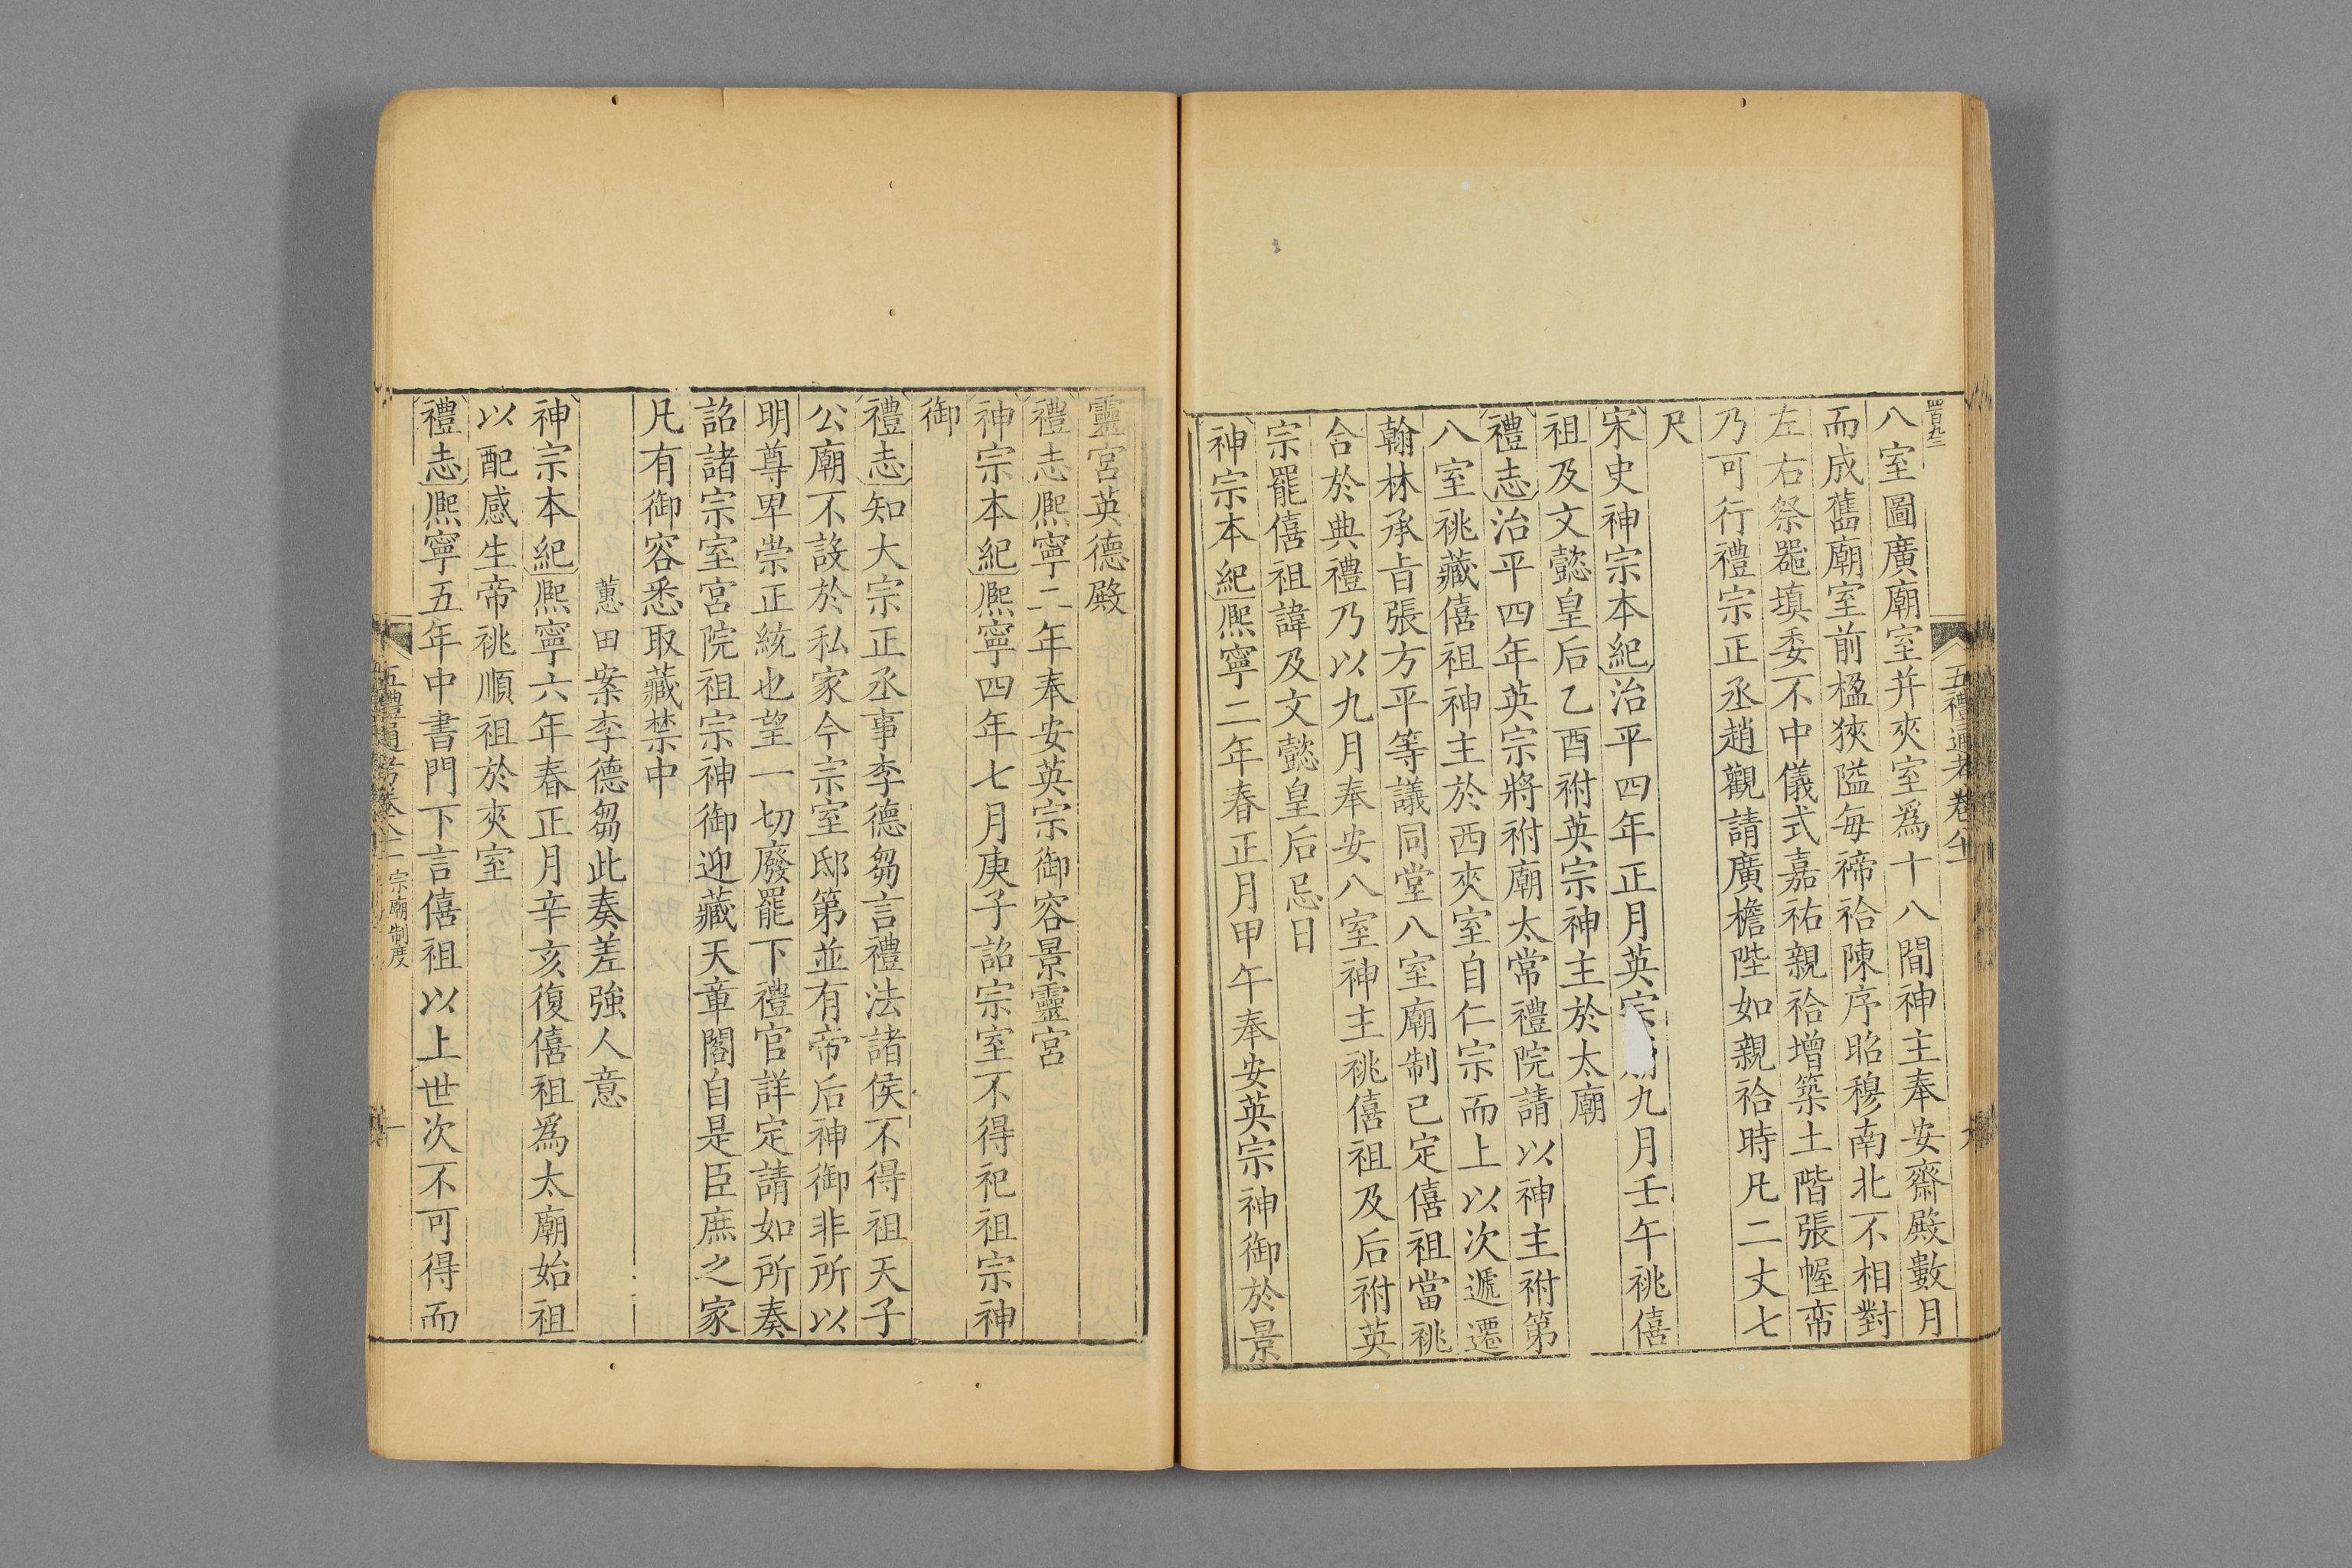 四百九三
八室圖廣廟室并夾室爲十八間神主奉安齋殿數月
而成舊廟室前楹狹隘每禘祫陳序昭穆南北不相對
左右祭器填委不中儀式嘉祐親祫增築土階張幄帟
乃可行禮宗正丞趙觀請廣檐陛如親祫時凡二丈七
尺
宋史神宗本紀治平四年正月英宗九月壬午祧僖
祖及文懿皇后乙酉祔英宗神主於太廟
禮志治平四年英宗將祔廟太常禮院請以神主祔第
八室祧藏僖祖神主於西夾室自仁宗而上以次遞遷
翰林承旨張方平等議同堂八室廟制已定僖祖當祧
合於典禮乃以九月奉安八室神主祧僖祖及后祔英
宗罷僖祖諱及文懿皇后忌日
神宗本紀熈寧二年春正月甲午奉安英宗神御於景
五禮通考卷
九
靈宮英德殿
禮志熈寧二年奉安英宗御容景靈宮
神宗本紀熈寧四年七月庚子詔宗室不得祀祖宗神
御
禮志知大宗正丞事李德芻言禮法諸侯不得祖天子
公廟不設於私家今宗室邸第並有帝后神御非所以
明尊卑崇正統也望一切廢罷下禮官詳定請如所奏
詔諸宗室宮院祖宗神御迎藏天章閣自是臣庶之家
凡有御容悉取藏禁中
蕙田案李德芻此奏差強人意
神宗本紀熈寧六年春正月辛亥復僖祖爲太廟始祖
以配感生帝祧順祖於夾室
禮志熈寧五年中書門下言僖祖以上世次不可得而
五禮通考卷 宗廟制度